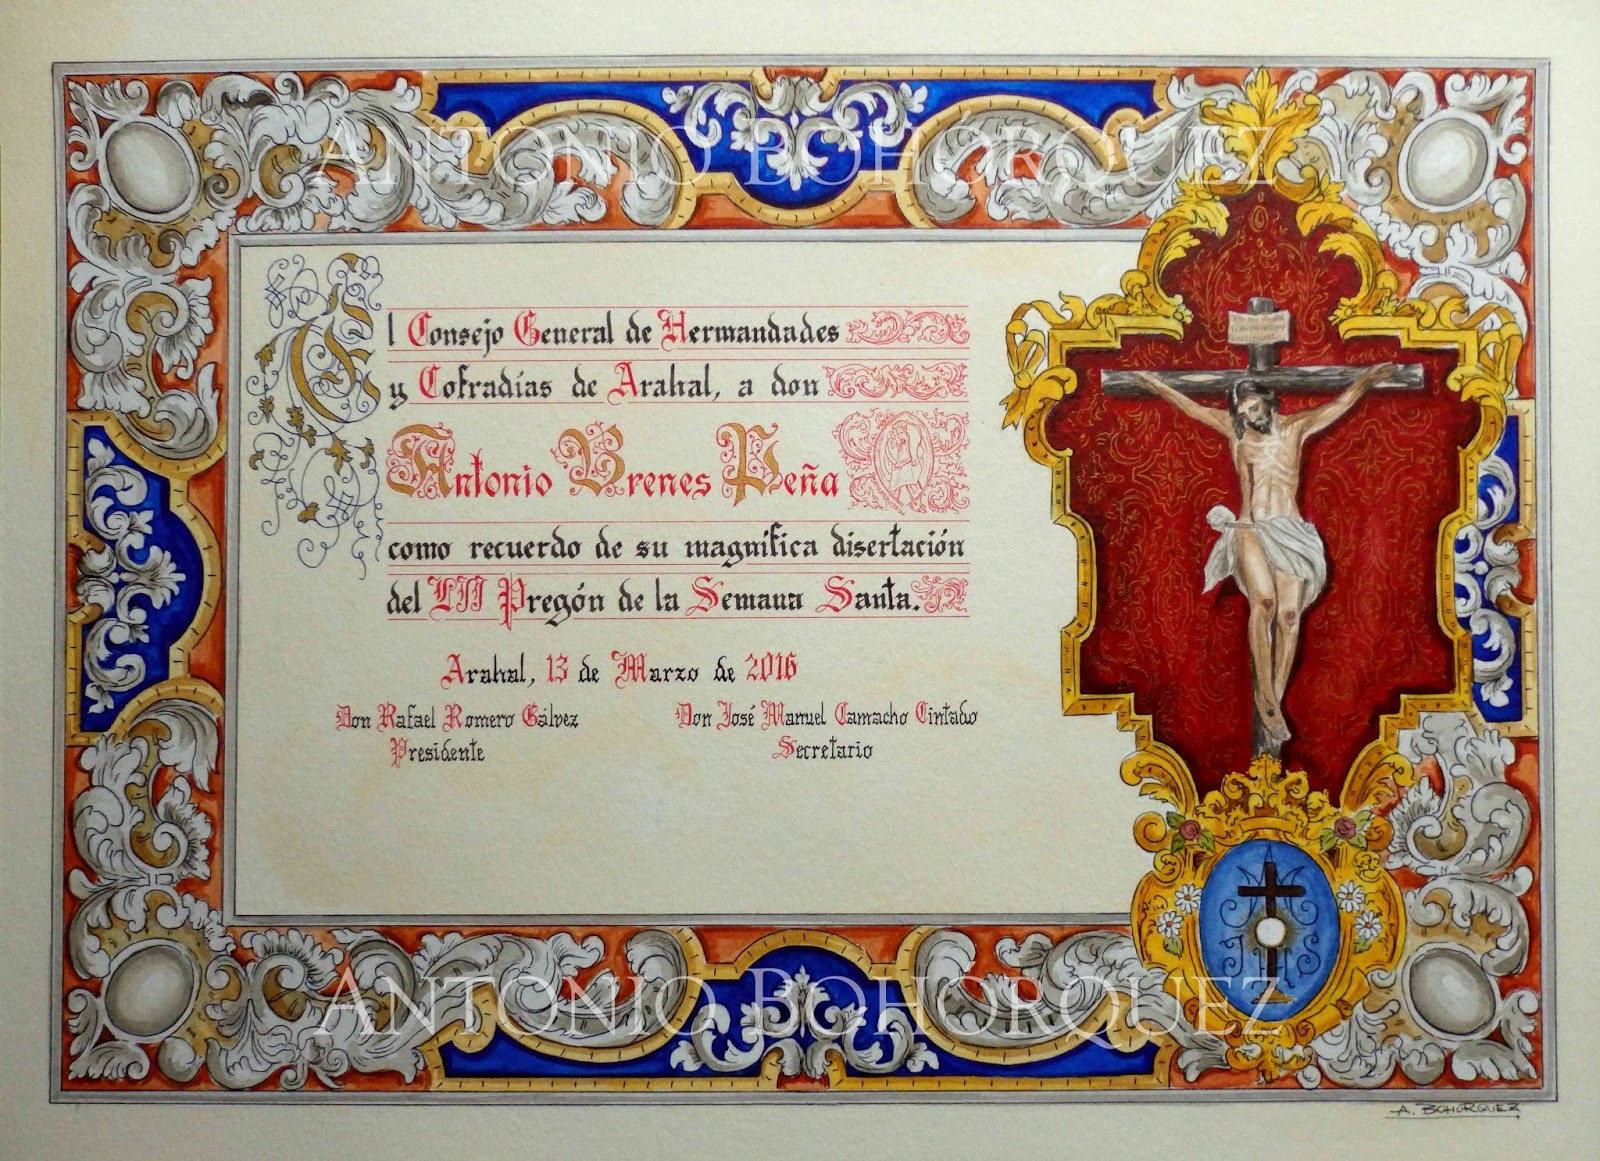 ANTONIO BOHÓRQUEZ
El Consejo General de Hermandades
y Cofradías de Arahal, a don
Antonio Brenes Peña
como recuerdo de su magnífica disertación
del LII Pregón de la Semana Santa.
Arahal, 13 de Marzo de 2016
Don Rafael Romero Gálvez
Presidente
Don José Manuel Camacho Cintado
Secretario
JHS
ANTONIO BOHÓRQUEZ
A. BOHÓRQUEZ